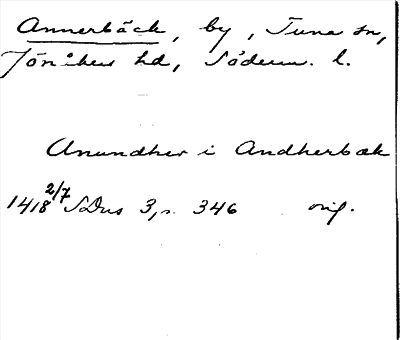 Annerbäck, by, Tuna sn,
Jönåkers hd, Söderm. l.
Anundher i Andherbak
1418 2/7 SDns 3, s. 346 orig.